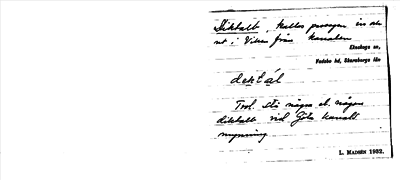 Diktalb, kallas passagen in och
ut i Viken från kanalen
Ekeskogs sn,
Vadsbo hd, Skaraborgs län
dektál
Trol. står några el. någon
diktalb vid Göta kanals
mynning
L. Madsén 1932.